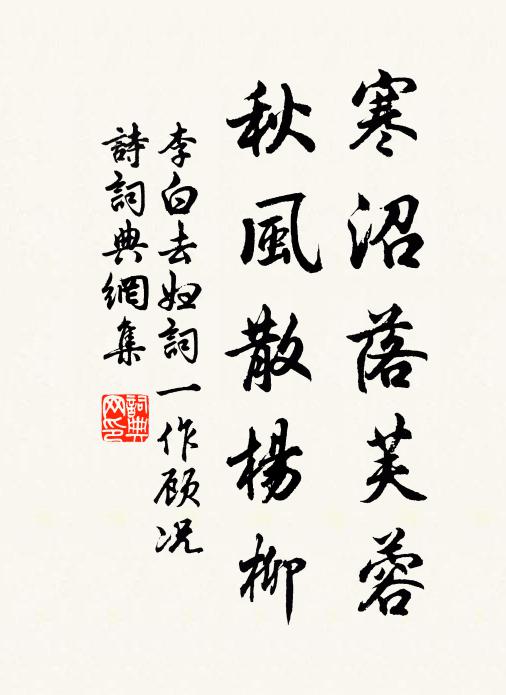 寒沼落芙蓉
秋風散楊柳
李白去妇詞一作顾况
詩詞典網集
詞典网印